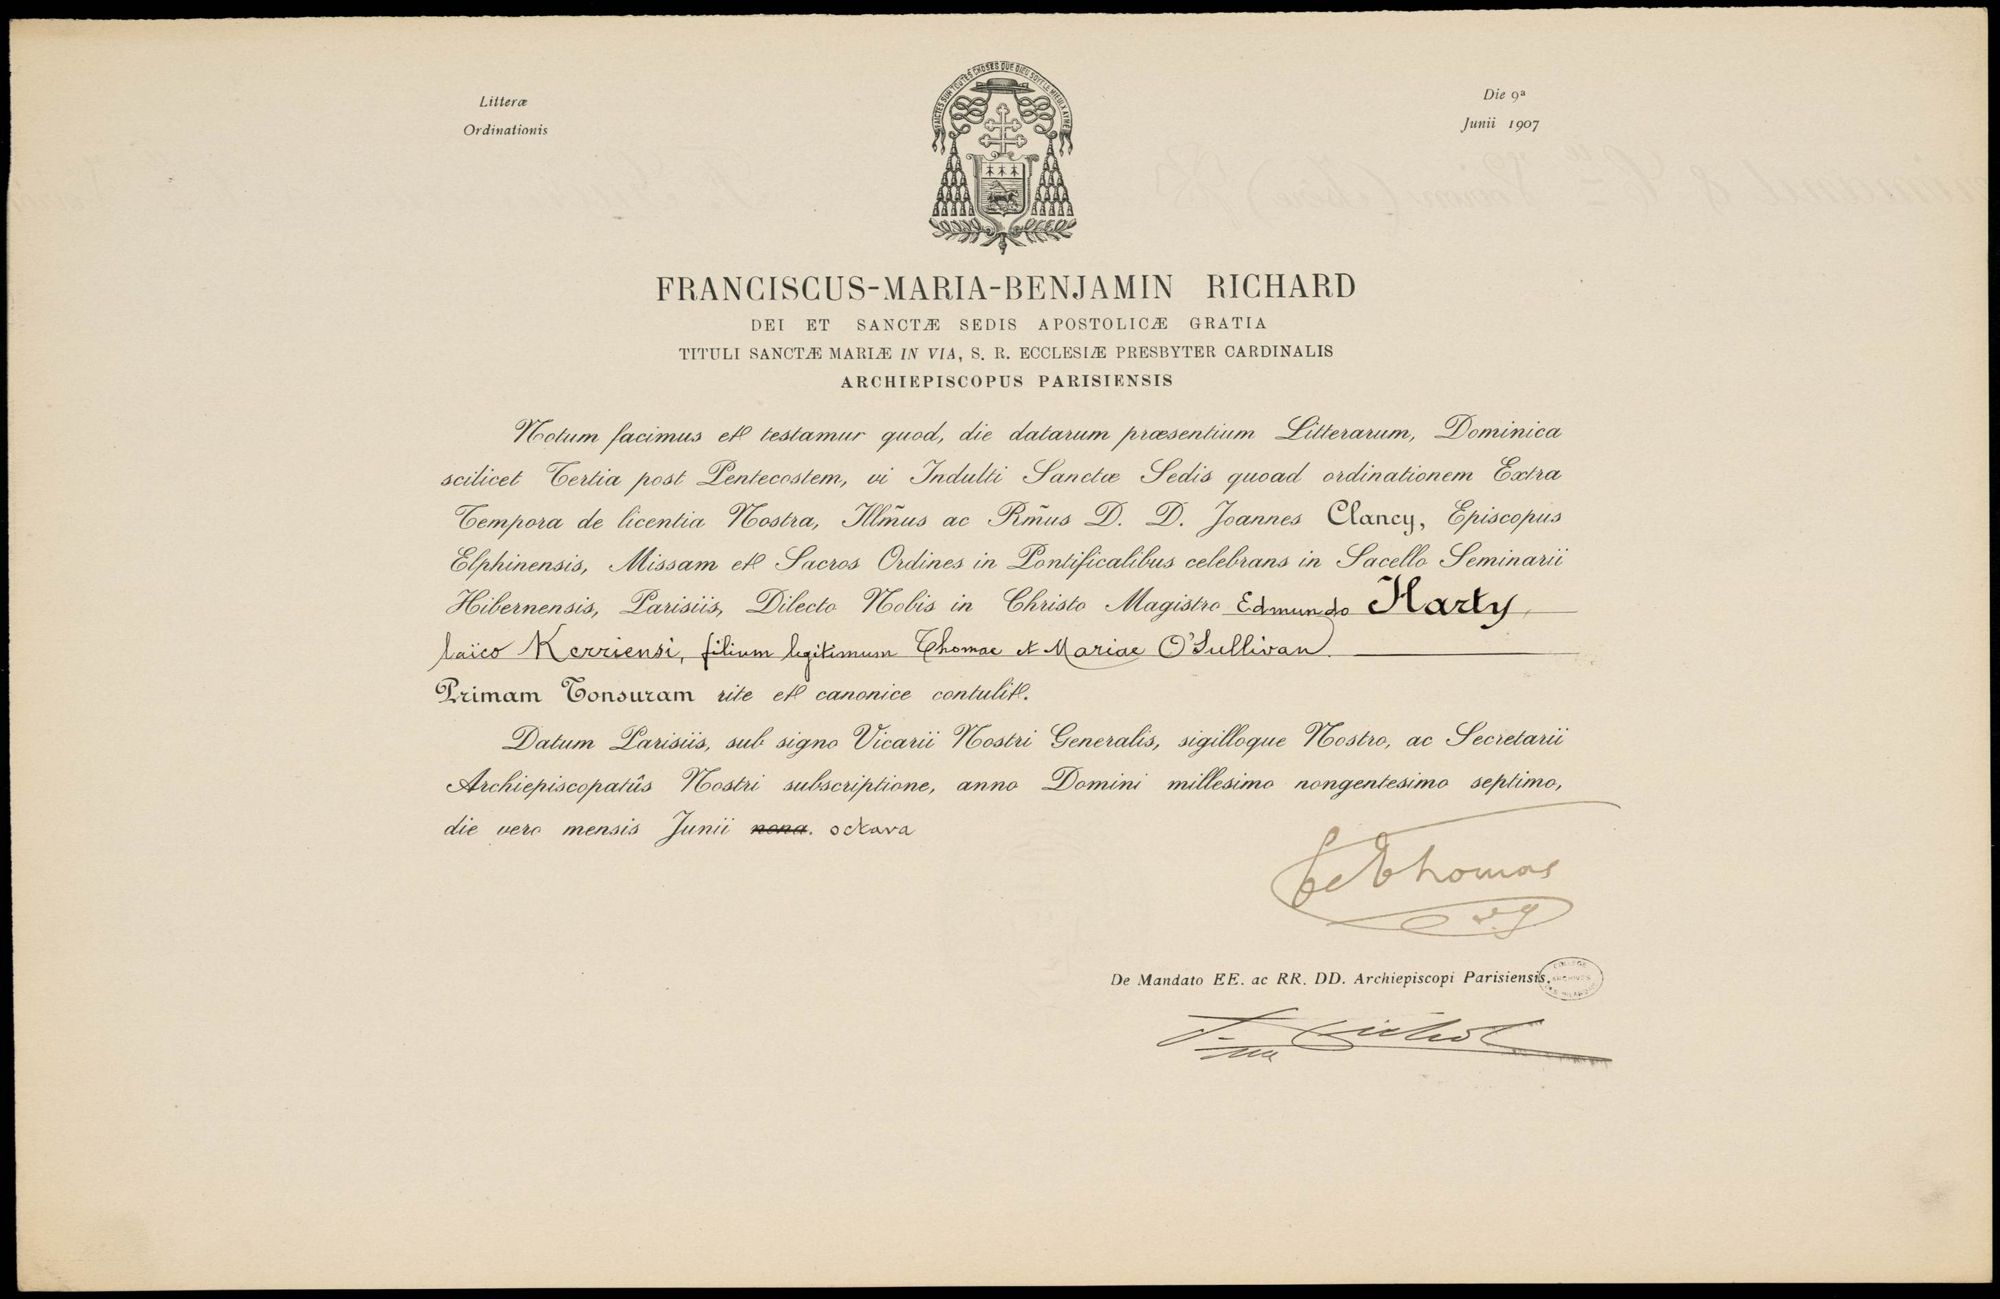 FAICTES SUR TOUTES CHOSES QUE DIEU SOYT LE MIEULX AYMÉ
Litteræ
Ordinationis
Die 9ª
Junii 1907
FRANCISCUS-MARIA-BENJAMIN RICHARD
DEI ET SANCTÆ SEDIS APOSTOLICÆ GRATIA
TITULI SANCTÆ MARIÆ IN VIA, S. R. ECCLESIÆ PRESBYTER CARDINALIS
ARCHIEPISCOPUS PARISIENSIS
Notum facimus et testamur quod, die datarum præsentium Litterarum, Dominica
scilicet Tertia post Pentecostem, vi Indulti Sanctæ Sedis quoad ordinationem Extra
Tempora de licentia Nostra, Illm̃us ac Rm̃us D. D. Joannes Clancy, Episcopus
Elphinensis, Missam et Sacros Ordines in Pontificalibus celebrans in Sacello Seminarii
Hibernensis, Parisiis, Dilecto Nobis in Christo Magistro Edmundo Harty,
laïco Kerriensi, filium legitimum Thomae et Mariae O'Sullivan
Primam Tonsuram rite et canonice contulit.
Datum Parisiis, sub signo Vicarii Nostri Generalis, sigilloque Nostro, ac Secretarii
Archiepiscopatûs Nostri subscriptione, anno Domini millesimo nongentesimo septimo,
die vero mensis Junii nona. octava
Thomas
vg
De Mandato EE. ac RR. DD. Archiepiscopi Parisiensis.
COLLEGE
ARCHIVES
DES IRLANDAIS